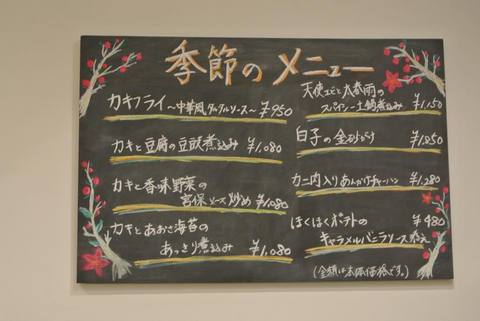 季節のメニュー
カキフライ
〜中華風タルタルソース〜 ¥950
カキと豆腐の豆豉煮込み ¥1,080
カキと香味野菜の
宮保ソース炒め ¥1,080
カキとあおさ海苔の
あっさり煮込み ¥1,080
天使エビと太春雨の
スパイシー土鍋煮込み ¥1,150
白子の金沙がけ ¥1,250
カニ肉入りあんかけチャーハン ¥1,280
ほくほくポテトの ¥480
キャラメルバニラソース添え
(金額は本体価格です。)